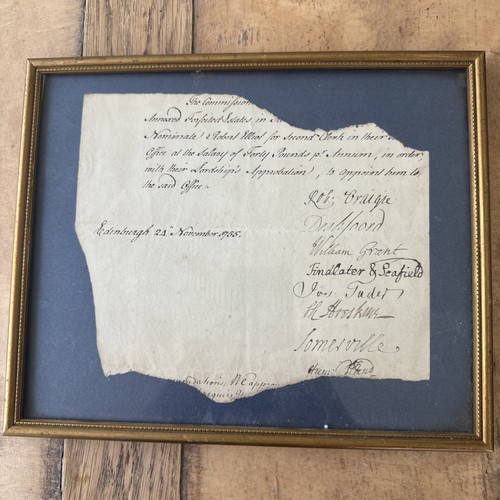 The Commission
Annexed Forfeited Estates in
Nominate Robert Wood for Second Clerk in their
Office at the Salary of Forty Pounds p.r Annum, in order
with their Lordships Approbation, to appoint him to
the said Office.
Edinburgh 24 November 1755.
Rob: Craigie
Drummore
William Grant
Findlater & Seafield
Jos. Tudor
Somerville